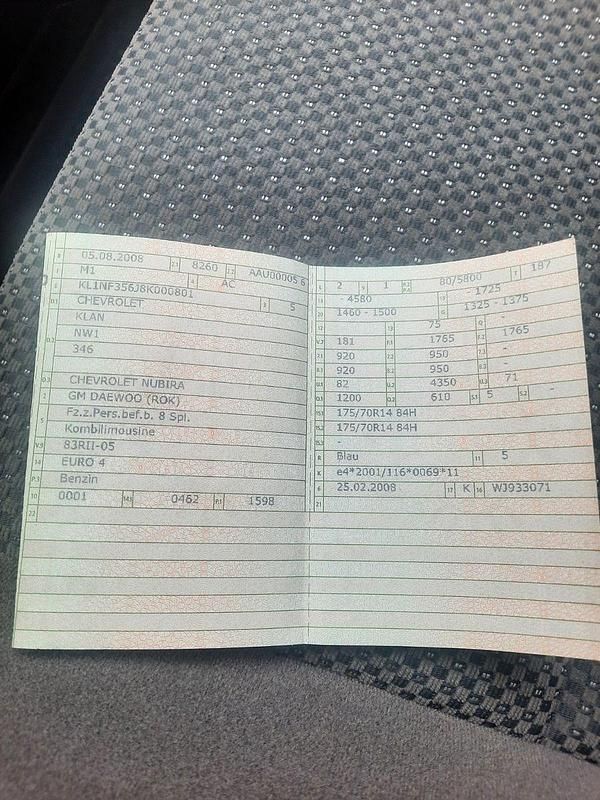 B 05.08.2008 2.1 8260 2.2 AAU00005 6
J M1 4 AC
E KL1NF356J8K000801 3 5
D.1 CHEVROLET
KLAN
D.2 NW1
346
D.3 CHEVROLET NUBIRA
2 GM DAEWOO (ROK)
5 Fz.z.Pers.bef.b. 8 Spl.
Kombilimousine
V.9 83RII-05
14 EURO 4
P.3 Benzin
10 0001 14.1 0462 P.1 1598
22
L 2 9 1 P.2 P.4 80/5800 T 187
18 - 4580 19 1725
20 1460 - 1500 G 1325 - 1375
12 - 13 75 Q -
V.7 181 F.1 1765 F.2 1765
7.1 920 7.2 950 7.3 -
8.1 920 8.2 950 8.3 -
U.1 82 U.2 4350 U.3 71
O.1 1200 O.2 610 S.1 5 S.2 -
15.1 175/70R14 84H
15.2 175/70R14 84H
15.3 -
R Blau 11 5
K e4*2001/116*0069*11
6 25.02.2008 17 K 16 WJ933071
21